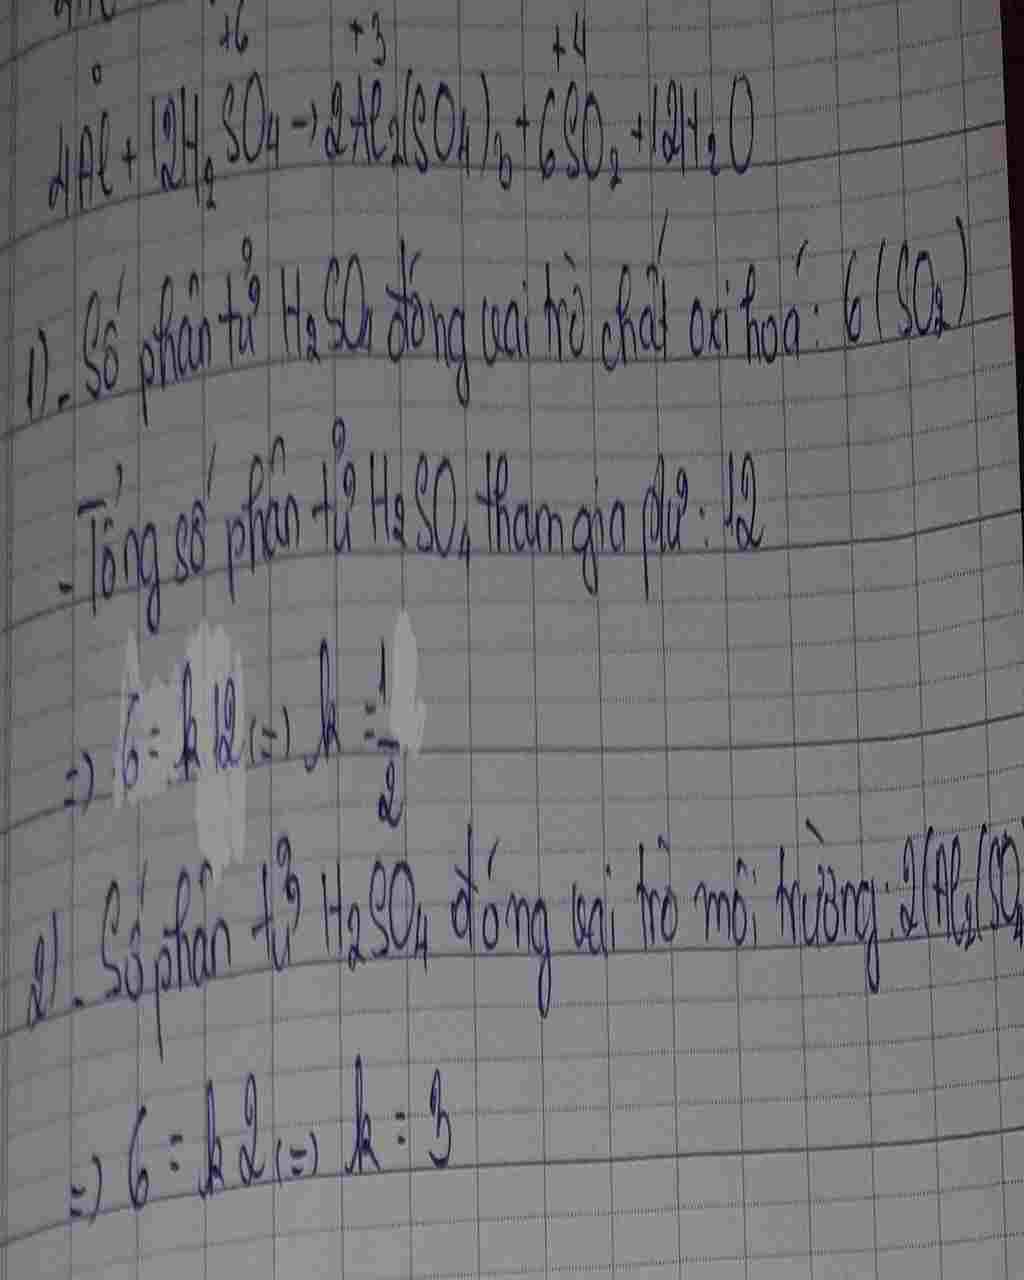 +6 +3 +4
0
4Al + 12H2SO4 → 2Al2(SO4)3 + 6SO2 + 12H2O
1). Số phân tử H2SO4 đóng vai trò chất oxi hoá: 6 (SO2)
- Tổng số phân tử H2SO4 tham gia pứ: 12
=> 6 = k12 (=) k = 1/2
2). Số phân tử H2SO4 đóng vai trò môi trường: 2(Al2(SO4
=> 6 = k2 (=) k = 3